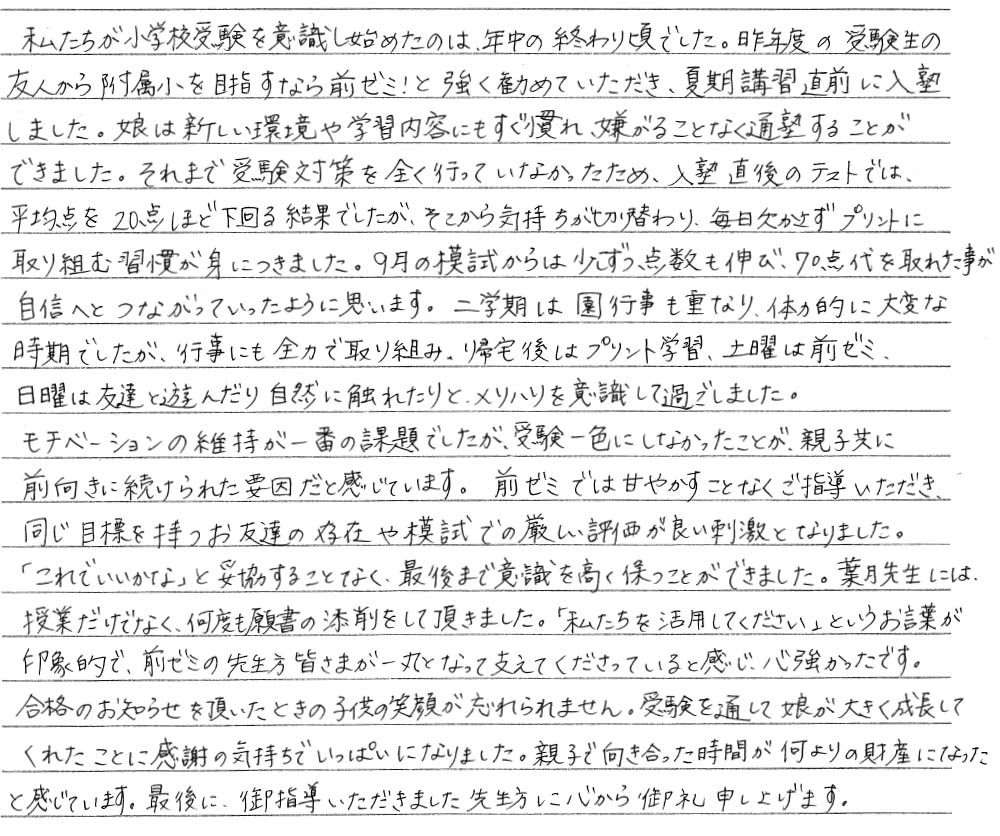 私たちが小学校受験を意識し始めたのは、年中の終わり頃でした。昨年度の受験生の
友人から附属小を目指すなら前ゼミ!と強く勧めていただき、夏期講習直前に入塾
しました。娘は新しい環境や学習内容にもすぐ慣れ、嫌がることなく通塾することが
できました。それまで受験対策を全く行っていなかったため、入塾直後のテストでは、
平均点を20点ほど下回る結果でしたが、そこから気持ちが切り替わり、毎日欠かさずプリントに
取り組む習慣が身につきました。9月の模試からは少しずつ点数も伸び、70点代を取れた事が
自信へとつながっていったように思います。二学期は園行事も重なり、体力的に大変な
時期でしたが、行事にも全力で取り組み、帰宅後はプリント学習、土曜は前ゼミ、
日曜は友達と遊んだり自然に触れたりと、メリハリを意識して過ごしました。
モチベーションの維持が一番の課題でしたが、受験一色にしなかったことが、親子共に
前向きに続けられた要因だと感じています。前ゼミでは甘やかすことなくご指導いただき、
同じ目標を持つお友達の存在や模試での厳しい評価が良い刺激となりました。
「これでいいかな」と妥協することなく、最後まで意識を高く保つことができました。葉月先生には、
授業だけでなく、何度も願書の添削をして頂きました。「私たちを活用してください」というお言葉が
印象的で、前ゼミの先生方皆さまが一丸となって支えてくださっていると感じ、心強かったです。
合格のお知らせを頂いたときの子供の笑顔が忘れられません。受験を通して娘が大きく成長して
くれたことに感謝の気持ちでいっぱいになりました。親子で向き合った時間が何よりの財産になった
と感じています。最後に、御指導いただきました先生方に心から御礼申し上げます。